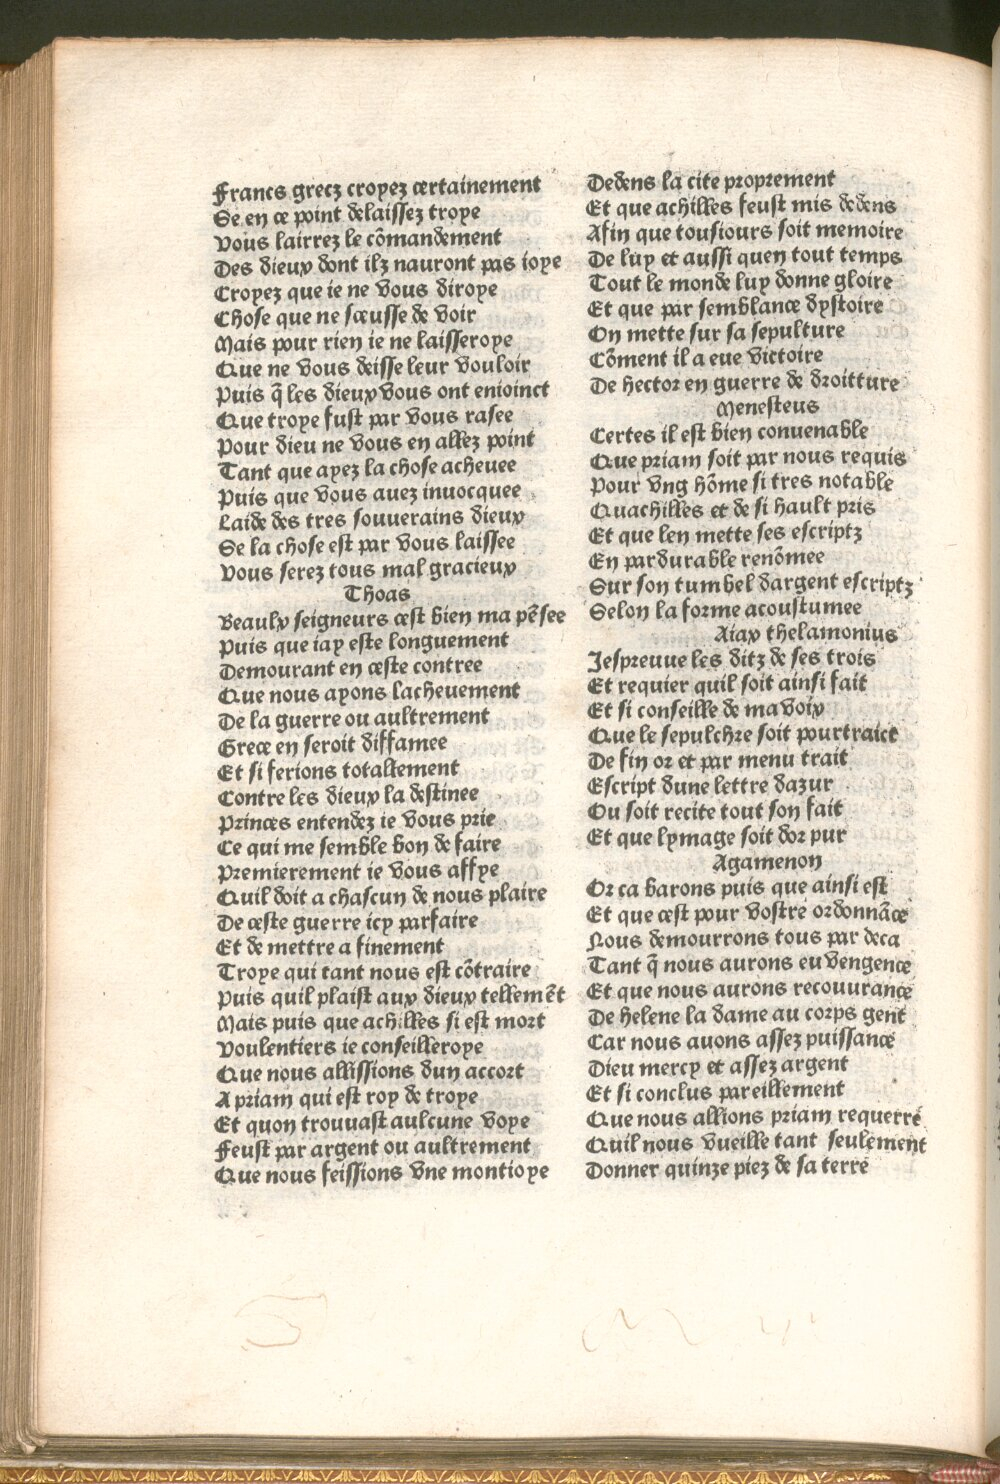 Francs grecz croyez certainement
Se en ce point delaissez troye
Vous lairrez le cõmandement
Des dieux dont ilz nauront pas ioye
Croyez que ie ne vous diroye
Chose que ne sceusse de voir
Mais pour rien ie ne laisseroye
Que ne vous deisse leur vouloir
Puis q̃ les dieux vous ont enioinct
Que troye fust par vous rasee
Pour dieu ne vous en allez point
Tant que ayez la chose acheuee
Puis que vous auez inuocquee
Laide des tres souuerains dieux
Se la chose est par vous laissee
Vous serez tous mal gracieux
Thoas
Beaulx seigneurs cest bien ma pẽsee
Puis que iay este longuement
Demourant en ceste contree
Que nous ayons lacheuement
De la guerre ou aultrement
Grece en seroit diffamee
Et si ferions totallement
Contre les dieux la destinee
Princes entendez ie vous prie
Ce qui me semble bon de faire
Premierement ie vous affye
Quil doit a chascun de nous plaire
De ceste guerre icy parfaire
Et de mettre a finement
Troye qui tant nous est cõtraire
Puis quil plaist aux dieux tellemẽt
Mais puis que achilles si est mort
Voulentiers ie conseilleroye
Que nous allissions dun accort
A priam qui est roy de troye
Et quon trouuast aulcune voye
Feust par argent ou aultrement
Que nous feissions vne montioye
Dedens la cite proprement
Et que achilles feust mis dedens
Afin que tousiours soit memoire
De luy et aussi quen tout temps
Tout le monde luy donne gloire
Et que par semblance dystoire
On mette sur sa sepulture
Cõment il a eue victoire
De hector en guerre de droitture
Menesteus
Certes il est bien conuenable
Que priam soit par nous requis
Pour vng hõme si tres notable
Quachilles et de si hault pris
Et que len mette ses escriptz
En pardurable renõmee
Sur son tumbel dargent escriptz
Selon la forme acoustumee
Aiax thelamonius
Iespreuue les ditz de ses trois
Et requier quil soit ainsi fait
Et si conseille de ma voix
Que le sepulchre soit pourtraict
De fin or et par menu trait
Escript dune lettre dazur
Ou soit recite tout son fait
Et que lymage soit dor pur
Agamenon
Or ca barons puis que ainsi est
Et que cest pour vostre ordonnãce
Nous demourrons tous par deca
Tant q̃ nous aurons eu vengence
Et que nous aurons recouurance
De helene la dame au corps gent
Car nous auons assez puissance
Dieu mercy et assez argent
Et si conclus pareillement
Que nous allions priam requerre
Quil nous vueille tant seulement
Donner quinze piez de sa terre